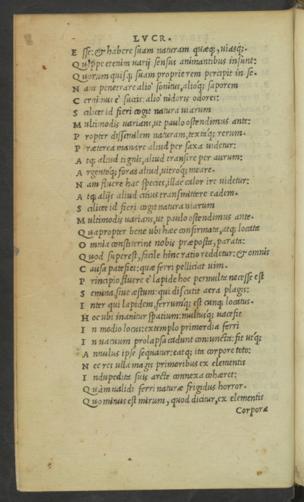 LVCR.
E sse: & habere suam naturam quæq; uiasq;.
Q uippe etenim uarij sensus animantibus insunt:
Q uorum quisq; suam proprie rem percipit in se.
N am penetrare alio sonitus, alioq; saporem
C ernimus è succis: alio nidoris odores:
S cilicet id fieri cogit natura uiarum
M ultimodis uarians, ut paulo ostendimus ante:
P ropter dissimilem naturam, textaq; rerum.
P ræterea manare aliud per saxa uidetur:
A tq; aliud lignis, aliud transire per aurum:
A rgentoq; foras aliud, uitroq; meare.
N am fluere hac species, illac calor ire uidetur:
A tq; alijs aliud citius transmittere eadem.
S cilicet id fieri cogit natura uiarum
M ultimodis uarians, ut paulo ostendimus ante.
Q uapropter bene ubi hæc confirmata, atq; locata
O mnia constiterint nobis præposta, parata:
Q uod superest, facile hinc ratio reddetur: & omnis
C ausa patefiet: quæ ferri pelliciat uim.
P rincipio fluere è lapide hoc permulta necesse est
S emina siue æstum: qui discutit aera plagis:
I nter qui lapidem, ferrumq; est cunq; locatus.
H oc ubi inanitur spatium: multusq; uacefit
I n medio locus: extemplo primordia ferri
I n uacuum prolapsa cadunt coniuncta: fit utq;
A nnulus ipse sequatur: eatq; ita corpore toto:
N ec res ulla magis primoribus ex elementis
I ndupedita suis arcte connexa cohæret:
Q uàm ualidi ferri naturæ frigidus horror.
Q uo minus est mirum, quod dicitur, ex elementis
Corpora